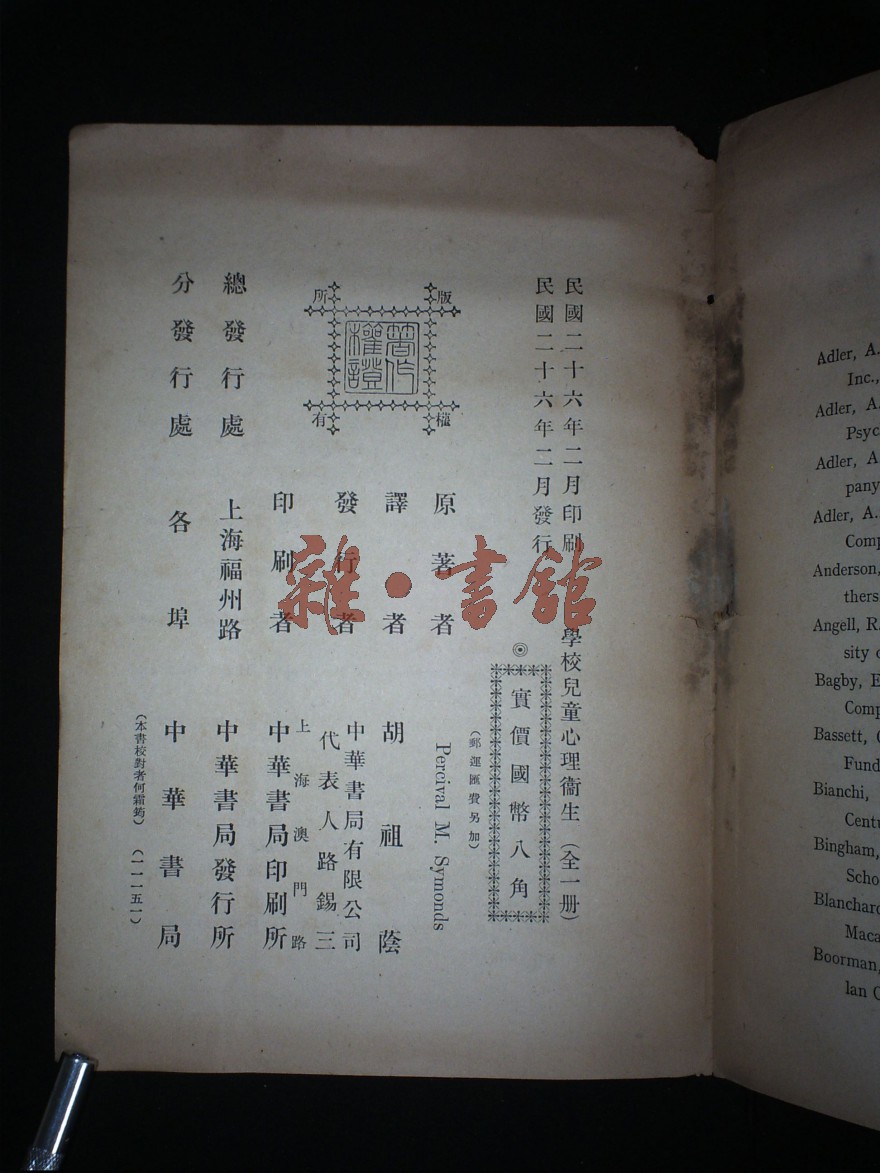 民國二十六年二月印刷
民國二十六年二月發行
學校兒童心理衞生（全一册）
◎實價國幣八角
（郵運匯費另加）
版權所有
著作權證
原著者 Percival M. Symonds
譯者 胡祖蔭
發行者 中華書局有限公司
代表人路錫三
印刷者 上海澳門路
中華書局印刷所
總發行處 上海福州路 中華書局發行所
分發行處 各埠 中華書局
（本書校對者何霜筠）（一一一五一）
雜·書館
Adler, A.
Inc.,
Adler, A.
Psyc
Adler, A
pany
Adler, A.
Comp
Anderson,
thers
Angell, R.
sity o
Bagby, E
Comp
Bassett, C
Fund
Bianchi,
Centu
Bingham,
Scho
Blanchard
Maca
Boorman,
lan C